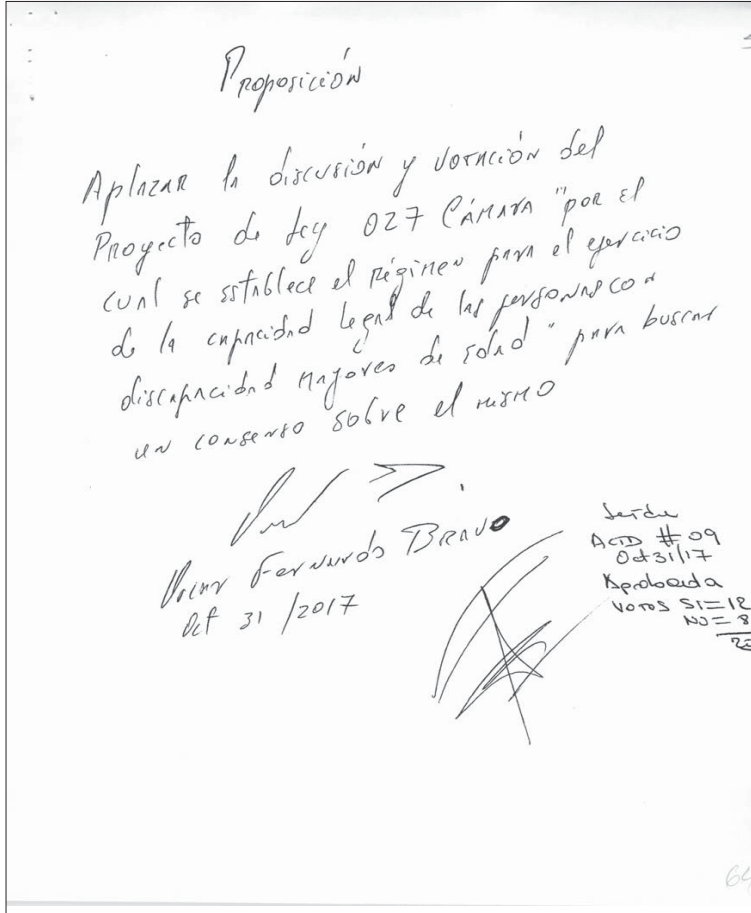 Proposición
Aplazar la discusión y votación del
Proyecto de Ley 027 Cámara "por el
cual se establece el régimen para el ejercicio
de la capacidad legal de las personas con
discapacidad mayores de edad" para buscar
un consenso sobre el mismo
Fernando Bravo
Oct 31 / 2017
Leída
Acta # 09
Oct 31/17
Aprobada
Votos SI = 12
NO = 8
64